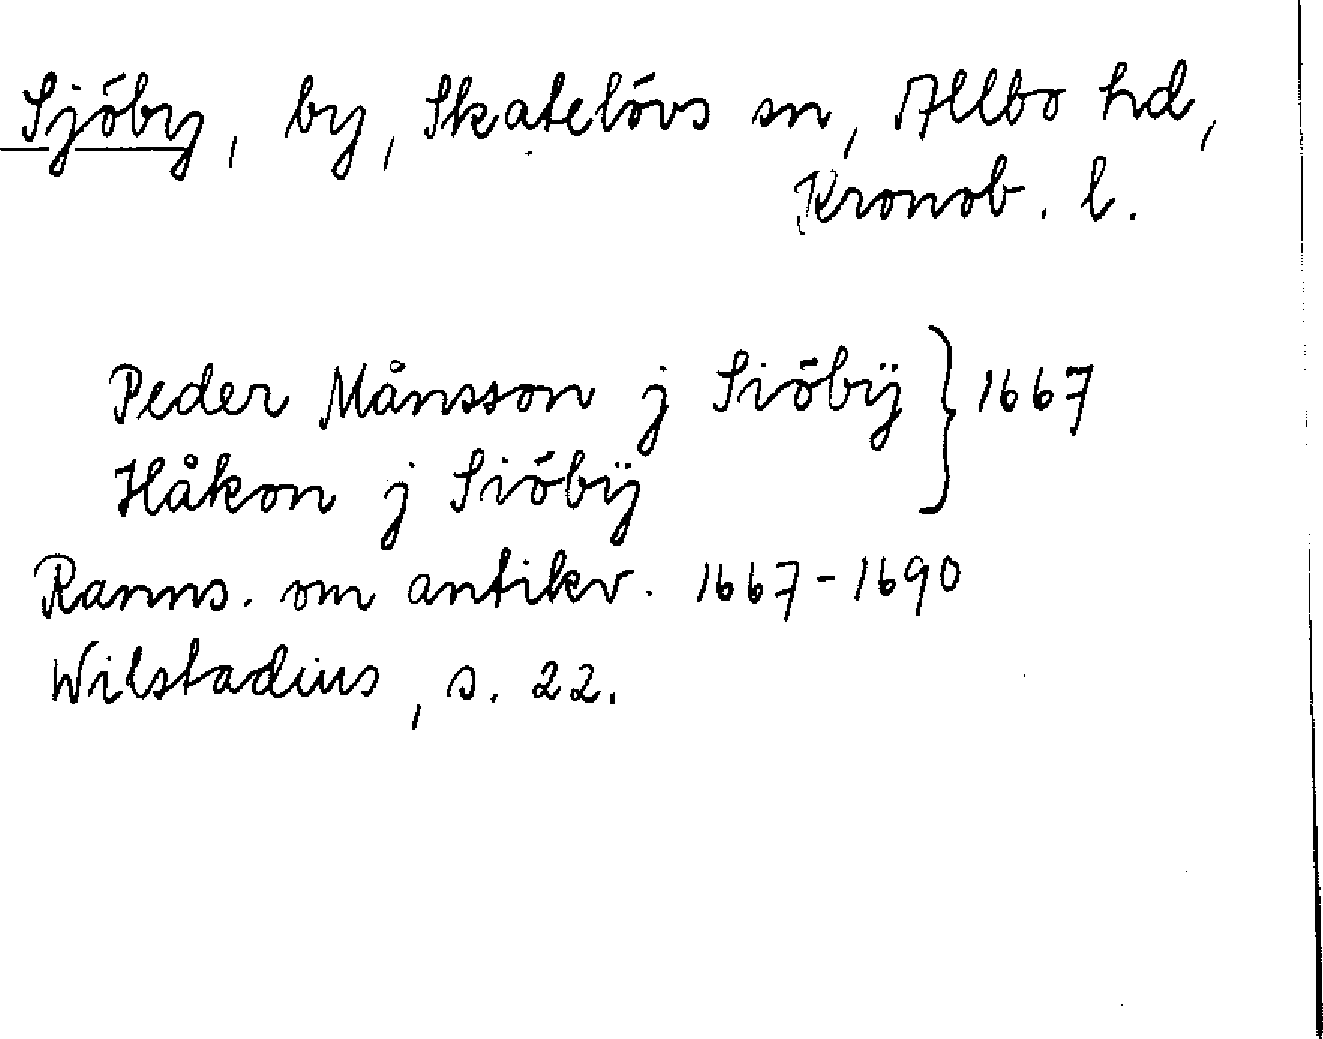 Sjöby, by, Skatelövs sn, Allbo hd,
Kronob. l.
Peder Månsson j Siöbÿ } 1667
Håkon j Siöbÿ
Ranns. om antikv. 1667-1690
Wilstadius, s. 22.